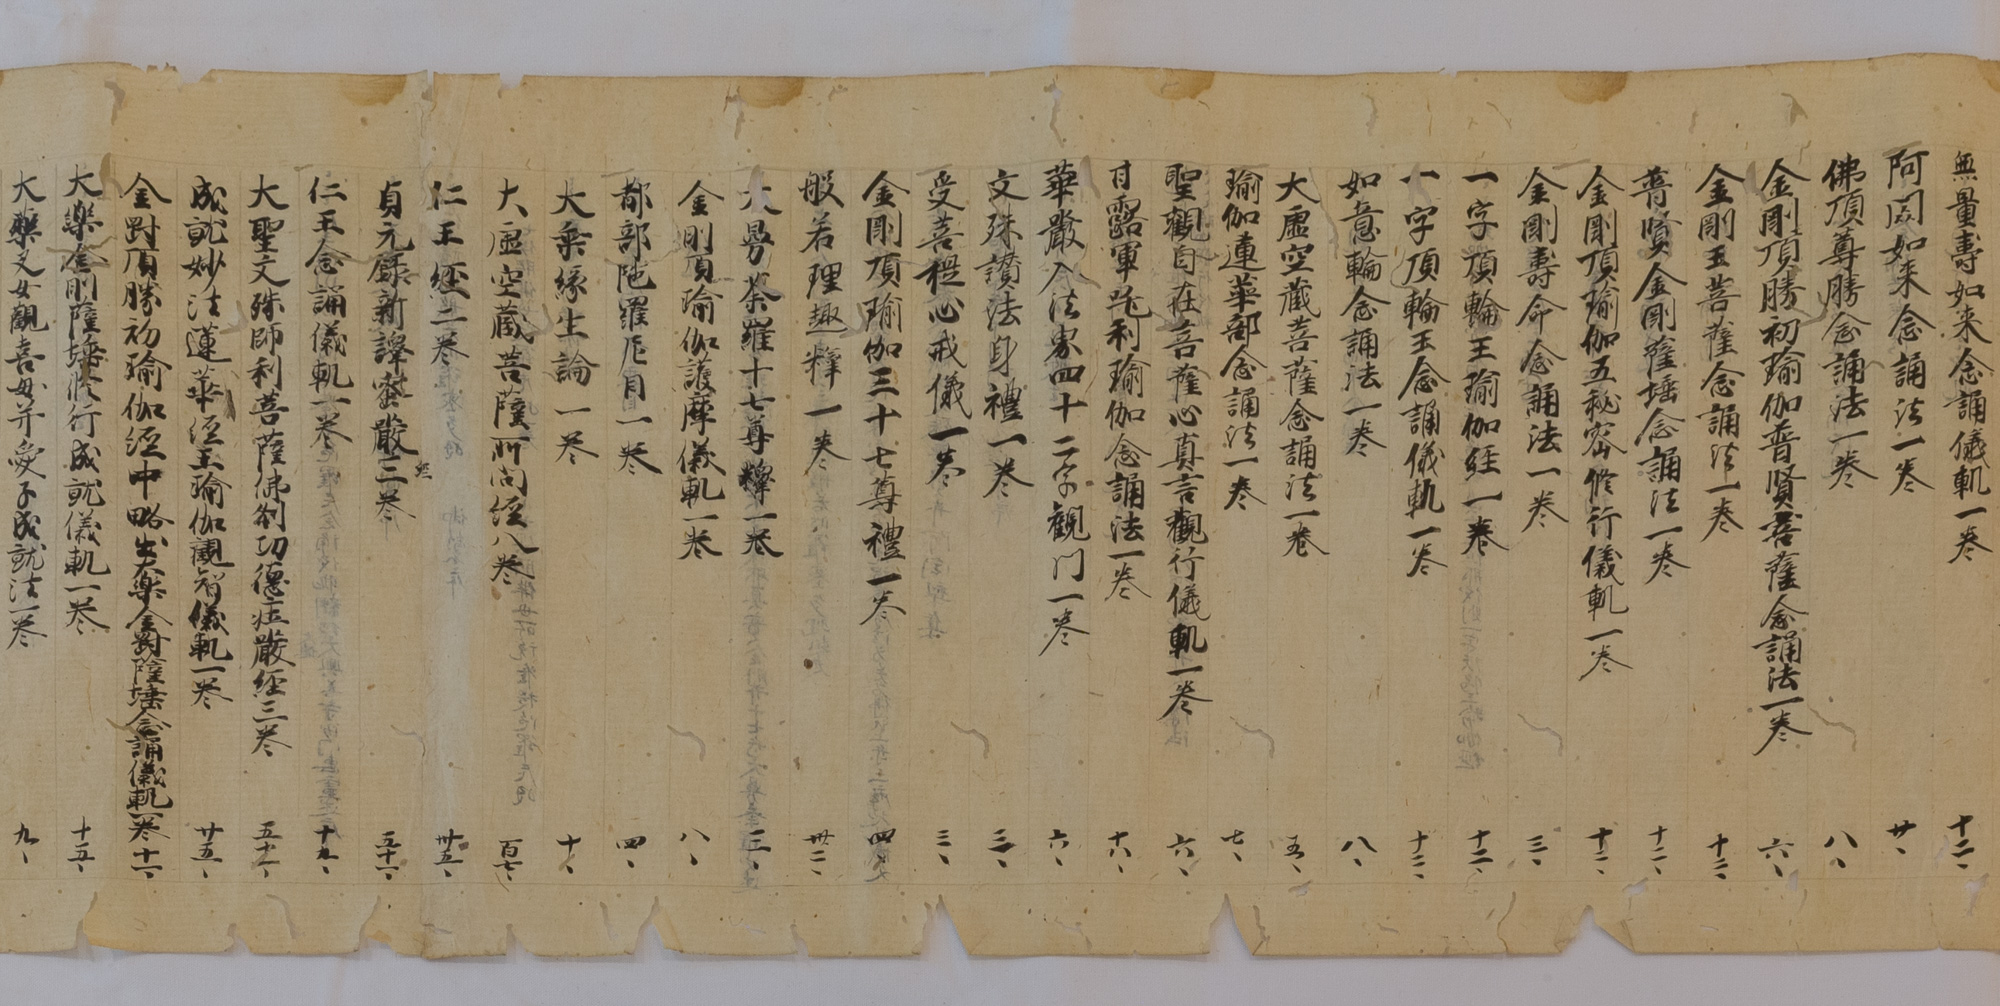 無量壽如来念誦儀軌一巻 十二、
阿閦如来念誦法一巻 廿、
佛頂尊勝念誦法一巻 八、
金剛頂勝初瑜伽普賢菩薩念誦法一巻 六、
金剛王菩薩念誦法一巻 十三、
普賢金剛薩埵念誦法一巻 十二、
金剛頂瑜伽五秘密修行儀軌一巻 十二、
金剛壽命念誦法一巻 三、
一字頂輪王瑜伽経一巻 十二、
一字頂輪王念誦儀軌一巻 十三、
如意輪念誦法一巻 八、
大虚空蔵菩薩念誦法一巻 五、
瑜伽連華部念誦法一巻 七、
聖觀自在菩薩心真言觀行儀軌一巻 六、
甘露軍茶利瑜伽念誦法一巻 十六、
華嚴入法界四十二字觀門一巻 六、
文殊讃法身禮一巻 三、
受菩提心戒儀一巻 三、
金剛頂瑜伽三十七尊禮一巻 四、
般若理趣釋一巻 卅二、
大曼荼羅十七尊釋一巻 三、
金剛頂瑜伽護摩儀軌一巻 八、
都部陁羅尼目一巻 四、
大乗縁生論一巻 十、
大虚空蔵菩薩所問経八巻 百七、
仁王経二巻 卅五、
貞元録新譯密嚴三巻 五十一、
仁王念誦儀軌一巻 十九、
大聖文殊師利菩薩佛刹功徳莊嚴経三巻 五十一、
成就妙法蓮華経王瑜伽觀智儀軌一巻 廿五、
金對頂勝初瑜伽経中略出大楽金對薩埵念誦儀軌一巻 十一、
大樂金剛薩埵修行成就儀軌一巻 十五、
大藥叉女歡喜母并愛子成就法一巻 九、